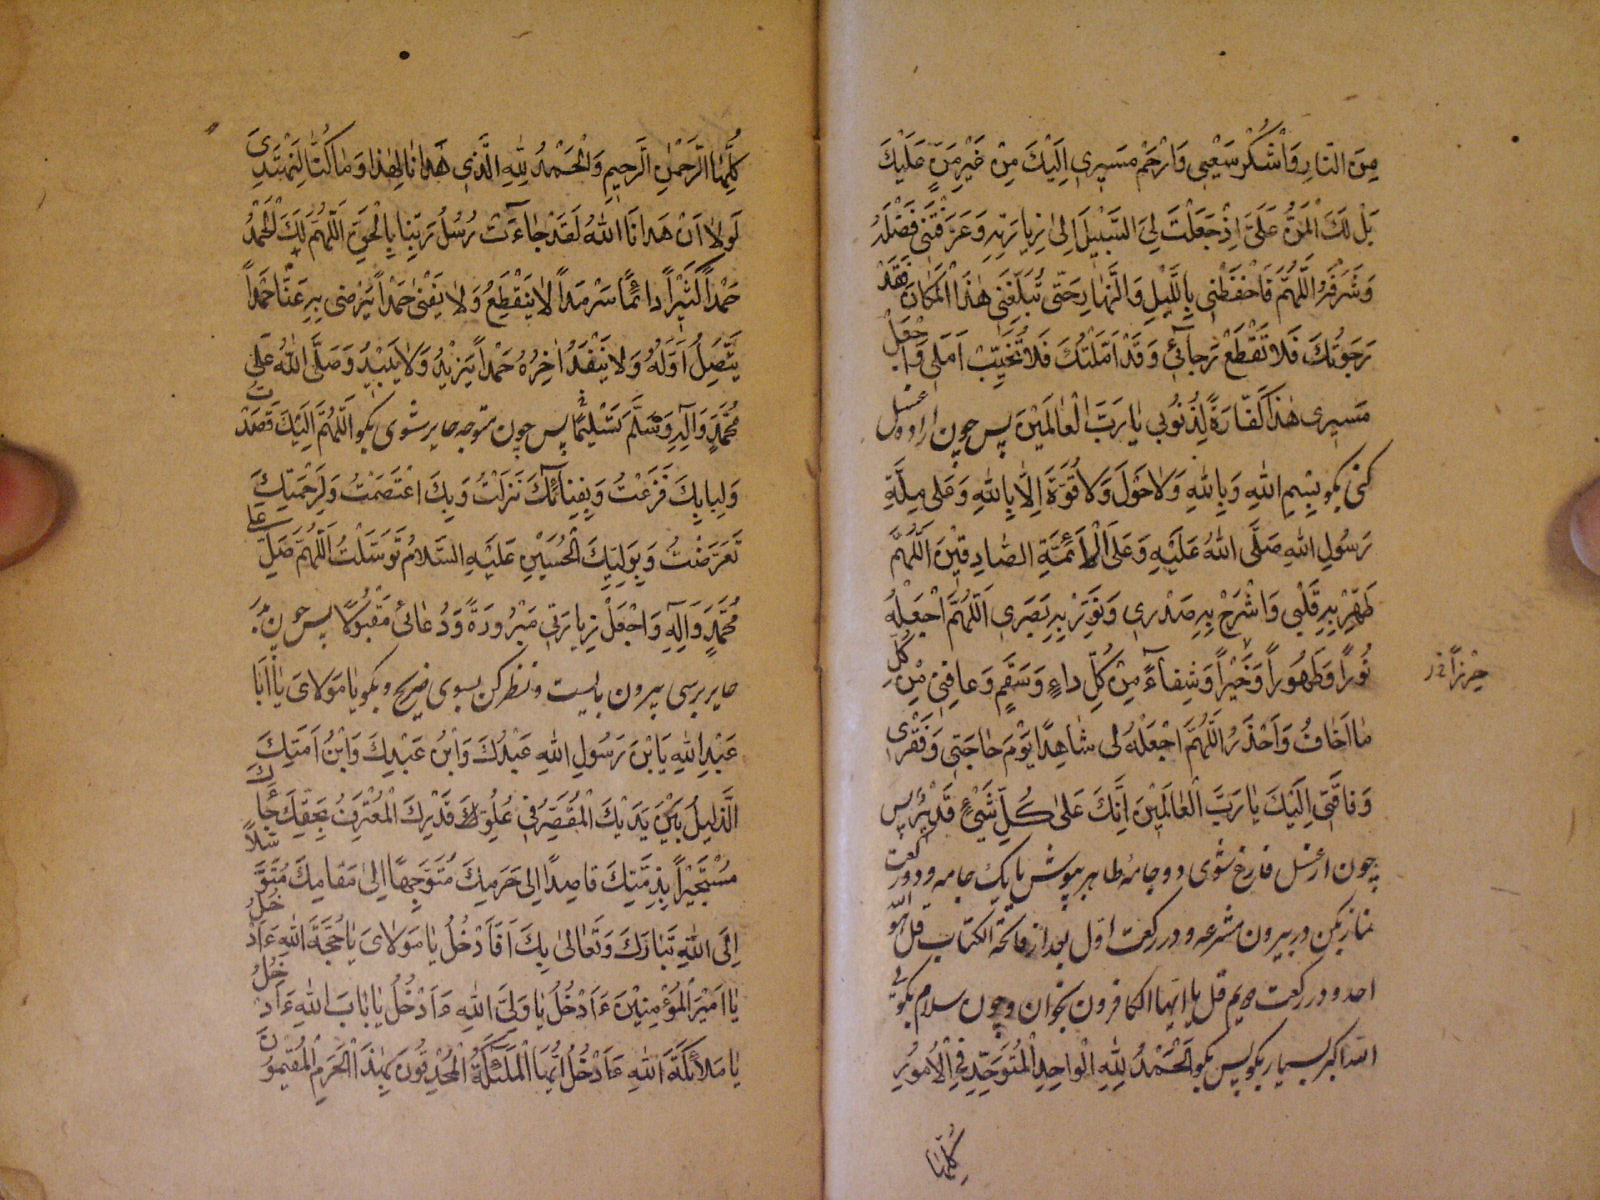 مِنَ النّارِ وَاشْكُرْ سَعْيى وَارْحَمْ مَسيرى اِلَيْكَ مِنْ غَيْرِ مَنٍّ عَلَيْكَ
بَلْ لَكَ الْمَنُّ عَلَىَّ اِذْ جَعَلْتَ لِىَ السَّبيلَ اِلىٰ زِيارَتِهِ وَعَرَّفْتَنى فَضْلَهُ
وَشَرَفَهُ اللّٰهُمَّ فَاحْفَظْنى بِاللَّيْلِ وَالنَّهارِ حَتّى تُبَلِّغَنى هٰذَا الْمَكانَ فَقَدْ
رَجَوْتُكَ فَلا تَقْطَعْ رَجآئى وَقَدْ اَمَّلْتُكَ فَلا تُخَيِّبْ اَمَلى وَاجْعَلْ
مَسيرى هٰذا كَفّارَةً لِذُنُوبى يا رَبَّ الْعالَمينَ پس چون اراده غسل
كنى بگو بِسْمِ اللهِ وَبِاللهِ وَلاٰ حَوْلَ وَلاٰ قُوَّةَ اِلّا بِاللهِ وَعَلى مِلَّةِ
رَسُولِ اللهِ صَلَّى اللهُ عَلَيْهِ وَعَلَى الْاَئِمَّةِ الصّادِقينَ اَللّٰهُمَّ
طَهِّرْ بِهِ قَلْبى وَاشْرَحْ بِهِ صَدْرى وَنَوِّرْ بِهِ بَصَرى اَللّٰهُمَّ اجْعَلْهُ
نُوراً وَطَهُوراً وَخَيْراً وَشِفآءً مِنْ كُلِّ داءٍ وَسَقَمٍ وَعافِنى مِنْ كُلِّ
حِرْزاً
ما اَخافُ وَاَحْذَرُ اَللّٰهُمَّ اجْعَلْهُ لى شاهِداً يَوْمَ حاجَتى وَفَقْرى
وَفاقَتى اِلَيْكَ يا رَبَّ الْعالَمينَ اِنَّكَ عَلىٰ كُلِّ شَىْءٍ قَديرٌ پس
چون از غسل فارغ شوى دو جامهٔ طاهر بپوش يا يك جامه و دو ركعت
نماز بكن در بيرون مشرعه و در ركعت اول بعد از فاتحة الكتاب قل هو الله
احد و در ركعت دويم قل يا ايها الكافرون بخوان و چون سلام بگوئى
الله اكبر بسيار بگو پس بگو اَلْحَمْدُ لِلّٰهِ الْواحِدِ الْمُتَوَحِّدِ فِى الْاُمُورِ
كُلِّهٰا
كُلِّهٰا الرَّحْمٰنِ الرَّحيمِ وَالْحَمْدُ لِلّٰهِ الَّذى هَدانا لِهٰذا وَمٰا كُنّا لِنَهْتَدِىَ
لَوْلا اَنْ هَدانَا اللهُ لَقَدْ جاءَتْ رُسُلُ رَبِّنا بِالْحَقِّ اَللّٰهُمَّ لَكَ الْحَمْدُ
حَمْداً كَثيراً دائِماً سَرْمَداً لا يَنْقَطِعُ وَلا يَفْنىٰ حَمْداً تَرْضى بِهِ عَنّا حَمْداً
يَتَّصِلُ اَوَّلُهُ وَلا يَنْفَدُ اٰخِرُهُ حَمْداً يَزيدُ وَلا يَبيدُ وَصَلَّى اللهُ عَلى
مُحَمَّدٍ وَآلِهِ وَسَلَّمَ تَسْليماً پس چون متوجه حاير شوى بگو اَللّٰهُمَّ اِلَيْكَ قَصَدْتُ
وَلِبابِكَ قَرَعْتُ وَبِفِنآئِكَ نَزَلْتُ وَبِكَ اعْتَصَمْتُ وَلِرَحْمَتِكَ
تَعَرَّضْتُ وَبِوَلِيِّكَ الْحُسَيْنِ عَلَيْهِ السَّلامُ تَوَسَّلْتُ اَللّٰهُمَّ صَلِّ عَلى
مُحَمَّدٍ وَآلِهِ وَاجْعَلْ زِيارَتى مَبْرُورَةً وَدُعائى مَقْبُولاً پس چون بدر
حاير برسى بيرون بايست و نظر كن بسوى ضريح و بگو يا مَوْلاىَ يا اَبا
عَبْدِ اللهِ يَا بْنَ رَسُولِ اللهِ عَبْدُكَ وَابْنُ عَبْدِكَ وَابْنُ اَمَتِكَ
الَّذليلُ بَيْنَ يَدَيْكَ الْمُقَصِّرُ فى عُلُوِّ قَدْرِكَ الْمُعْتَرِفُ بِحَقِّكَ جآئَكَ
مُسْتَجيراً بِذِمَّتِكَ قاصِداً اِلى حَرَمِكَ مُتَوَجِّهاً اِلىٰ مَقامِكَ مُتَوَسِّلاً
اِلَى اللهِ تَبارَكَ وَتَعالىٰ بِكَ اَفَاَدْخُلُ يا مَولاىَ يا حُجَّةَ اللهِ ءَاَدْخُلُ
يا اَميرَ الْمُؤْمِنينَ ءَاَدْخُلُ يا وَلِىَّ اللهِ ءَاَدْخُلُ يا بابَ اللهِ ءَاَدْخُلُ
يا مَلآئِكَةَ اللهِ ءَاَدْخُلُ اَيُّهَا الْمَلئِكَةُ الْمُحْدِقُونَ بِهٰذَا الْحَرَمِ الْمُقيمُونَ